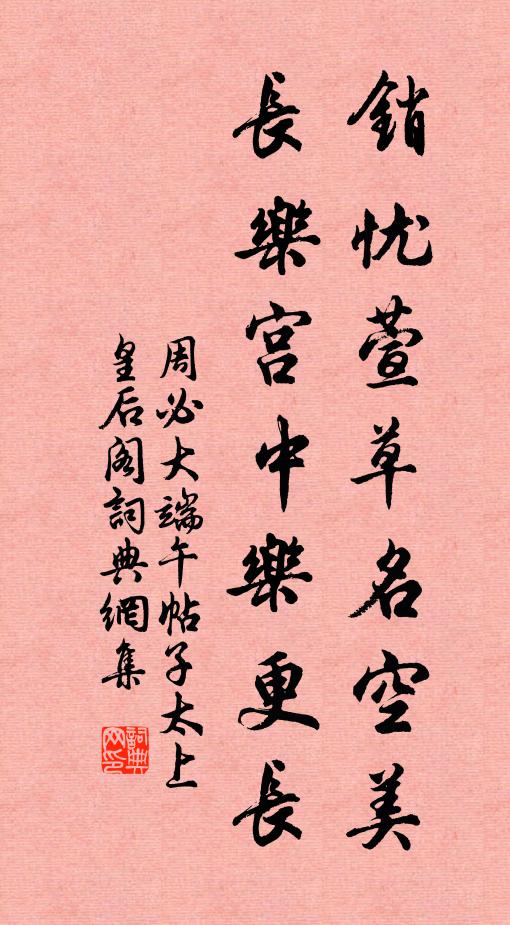 銷忧萱草名空美
長樂宫中樂更長
周必大端午帖子太上
皇后阁詞典網集
詞典网印